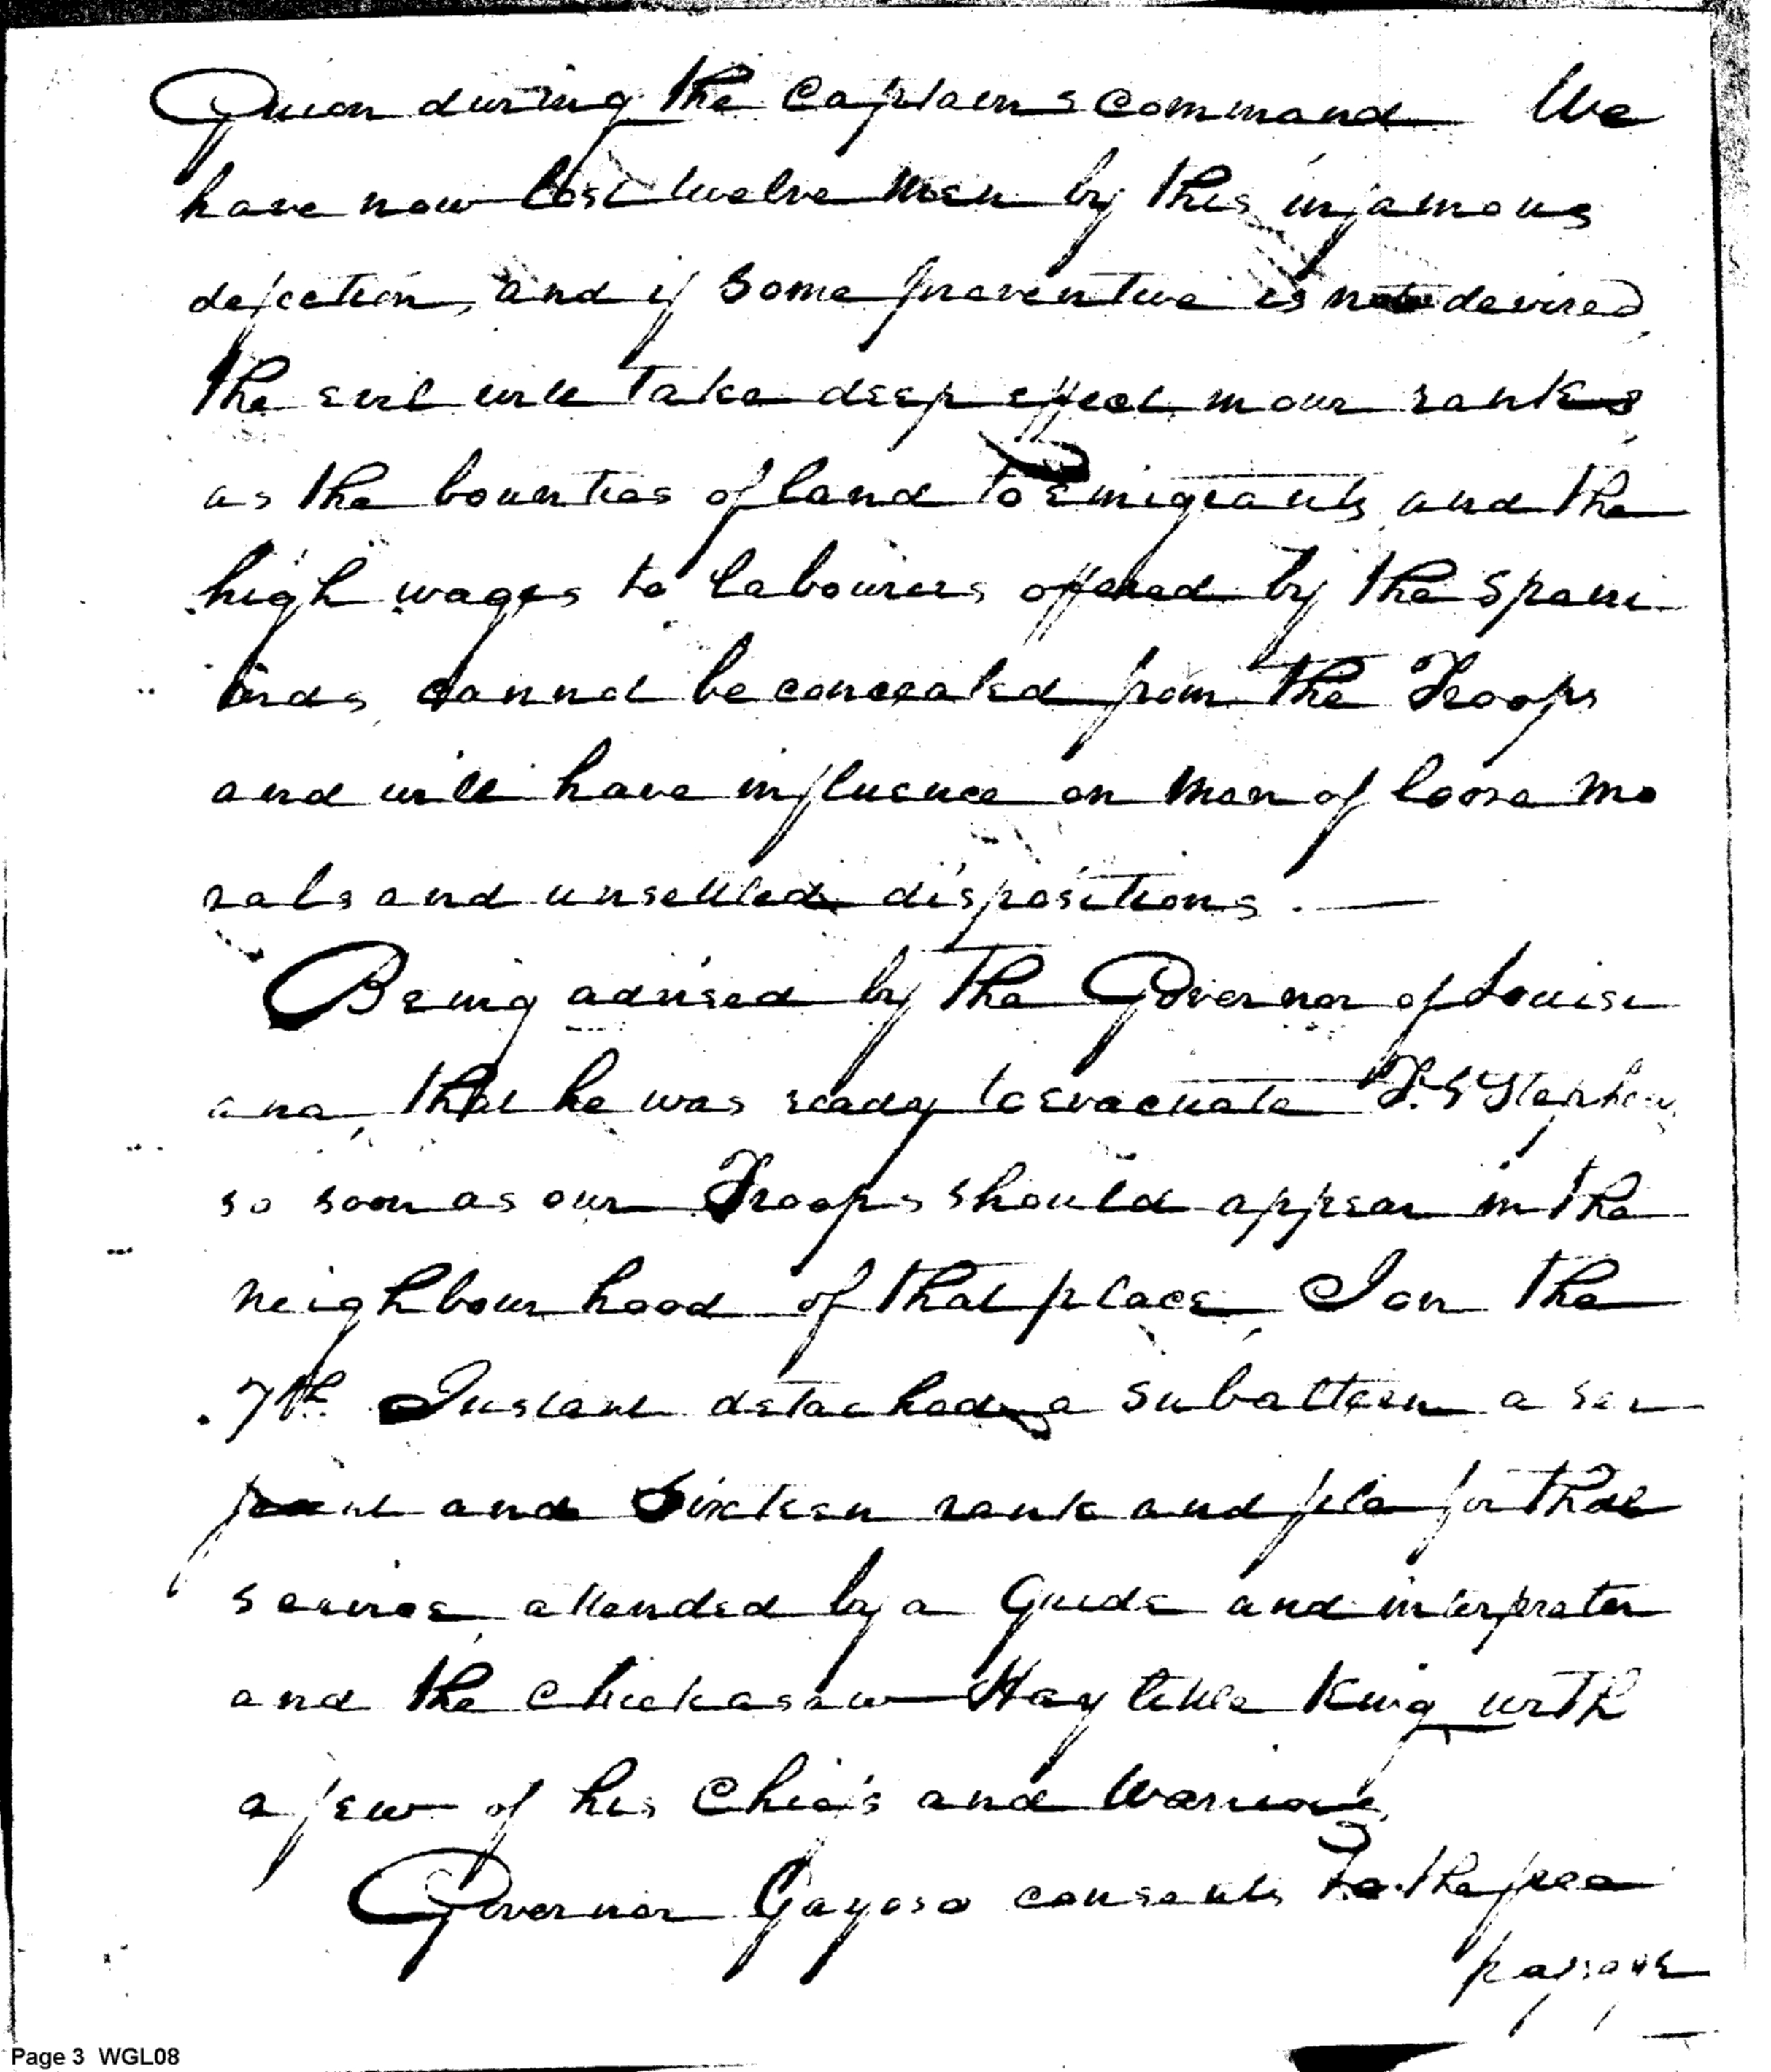 Guion during the Captains command We
have now lost twelve men by this infamous
defection, and if some preventive is not devised,
the evil will take deep effect in our ranks,
as the bounties of land to Emigrants, and the
high wages to labourers offered by the Spani
ards, cannot be concealed from the Troops
and will have influence on men of loose mo
rals and unsettled dispositions. —
Being advised by the Governor of Louisi
ana, that he was ready to evacuate Ft. St Stephens
so soon as our Troops should appear in the
neighbourhood of that place, I on the
7th Instant detached a subaltern a ser
jeant and Sixteen rank and file for that
service, attended by a Guide and interpreter
and the Chickasaw King with
a few of his Chiefs and Warriors,
Governor Gayoso consents to the free
passage
Page 3 WGL08